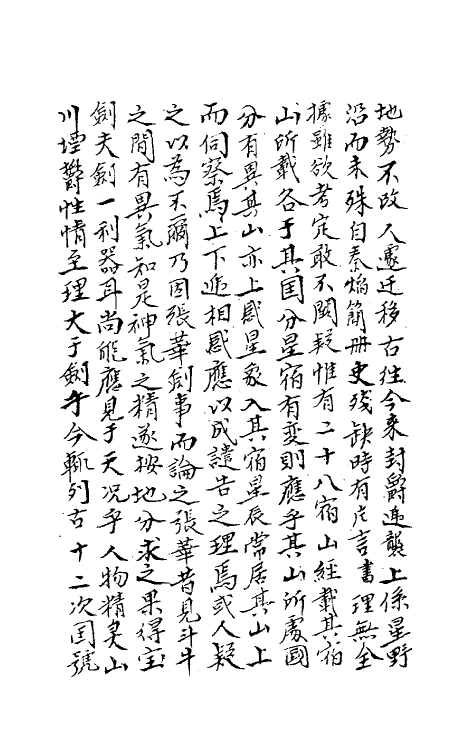 地勢不改人遷迁移古往今来封爵遞襲上係星野
沿而未殊自秦焰簡册史残缺時有片言書理無全
據雖欲考定敢不闕疑惟有二十八宿山經載其宿
山所載各于其国分星宿有変則應乎其山所處國
分有異其山亦上感星象入其宿星辰常居其山上
而伺察焉上下遞相感應以成譴告之理焉或人疑
之以為不爾乃因張華劍事而論之張華昔見斗牛
之間有異氣知是神氣之精遂按地分求之果得宝
劍夫劍一利器耳尚能應見于天况乎人物精灵山
川堙欝性情至理大于劍乎今輒列古十二次国號